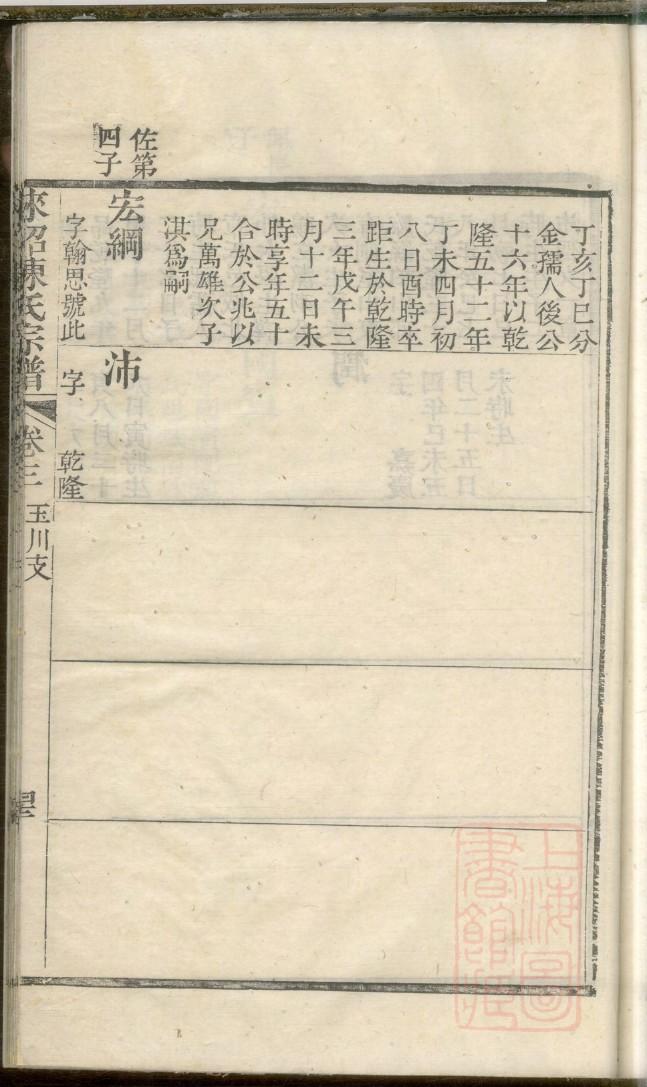 丁亥丁巳分
金孺人後公
十六年以乾
隆五十二年
丁未四月初
八日酉時卒
距生於乾隆
三年戊午三
月十二日未
時享年五十
合於公兆以
兄萬雄次子
淇爲嗣
佐第
四子
宏綱
沛
字翰思號此
字 乾隆
陳氏宗譜
卷三
玉川支
上海圖
書館藏